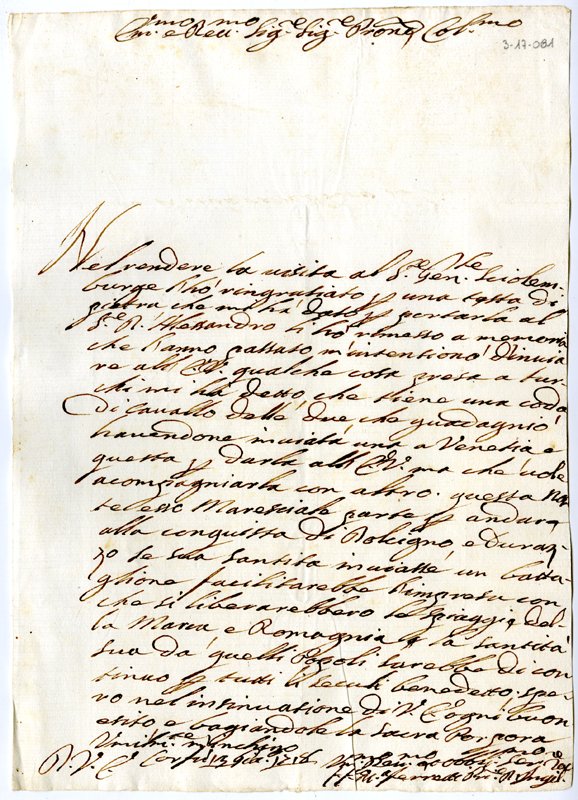 Em.mo e Rev.mo Sig.re Sig.re Prone Col.mo
3-17-081
Nel rendere la visita al S.e Gen.le Sciolem
burge l'hò ringratiato una testa di
pietra che mi hà dato portarla al
S.e R. Alessandro li hò rimesso a memoria
che l'anno passato m'intentionò d'invia
re all' E.V. qualche cosa presa a tur
chi mi hà detto che tiene una coda
di Cavallo delle due, che guadagnò
havendone inviata una a Venetia e
questa darla all' E.V. ma che vole
acompagniarla con altro. questa
Maresciale parte andare
alla conquista di Dolcigno, e Duraz
zo se sua Santità inviasse un batta
glione facilitarebbe l'impresa con
che si liberarebbero le spiaggie del
la Marca e Romagnia e la Santità
sua da quelli Popoli sarebbe di con
tinuo tutti li secoli benedetto. spe
ro nel insinuatione di V. E. ogni buon
esito e bagiandole la Sacra Porpora
D. V. E. Corfù 1716